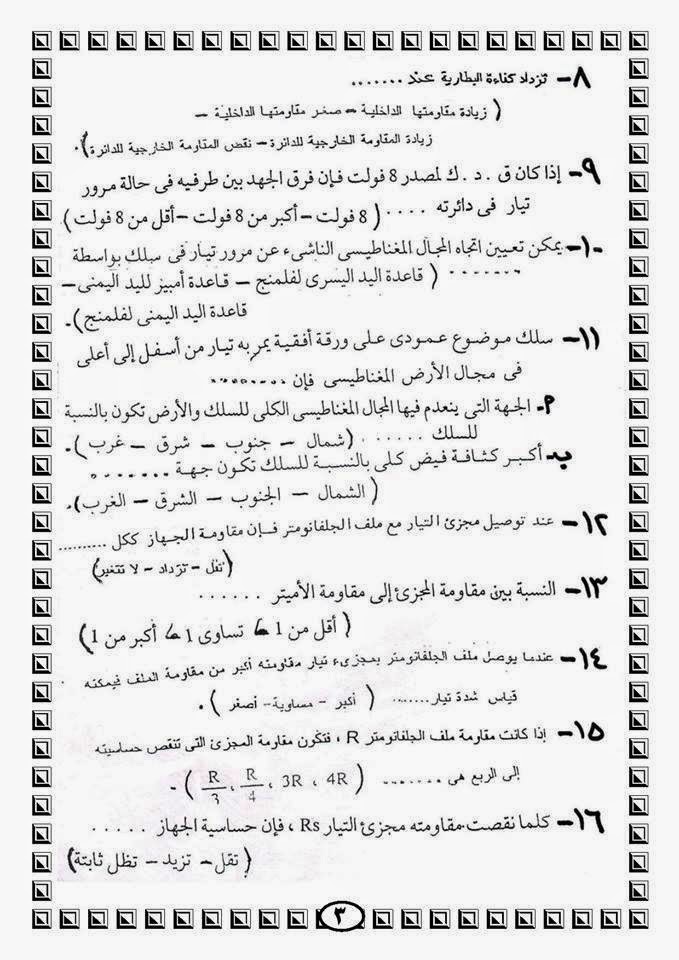 ٨- تزداد كفاءة البطارية عند .......
( زيادة مقاومتها الداخلية – صغر مقاومتها الداخلية –
زيادة المقاومة الخارجية للدائرة – نقص المقاومة الخارجية للدائرة).
٩- إذا كان ق . د . ك لمصدر 8 فولت فإن فرق الجهد بين طرفيه فى حالة مرور
تيار فى دائرته .... ( 8 فولت – أكبر من 8 فولت – أقل من 8 فولت)
١٠- يمكن تعيين اتجاه المجال المغناطيسى الناشىء عن مرور تيار فى سلك بواسطة
........ ( قاعدة اليد اليسرى لفلمنج – قاعدة أمبير لليد اليمنى –
قاعدة اليد اليمنى لفلمنج).
١١- سلك موضوع عمودى على ورقة أفقية يمر به تيار من أسفل إلى أعلى
فى مجال الأرض المغناطيسى فإن .........
٩- الجهة التى ينعدم فيها المجال المغناطيسى الكلى للسلك والأرض تكون بالنسبة
للسلك ...... (شمال – جنوب – شرق – غرب).
ب- أكبر كثافة فيض كلى بالنسبة للسلك تكون جهة .......
( الشمال – الجنوب – الشرق – الغرب).
١٢- عند توصيل مجزئ التيار مع ملف الجلفانومتر فإن مقاومة الجهاز ككل ..........
(تقل – تزداد – لا تتغير)
١٣- النسبة بين مقاومة المجزئ إلى مقاومة الأميتر ......
( أقل من 1 تساوى 1 أكبر من 1 )
١٤- عندما يوصل ملف الجلفانومتر بمجزىء تيار مقاومته أكبر من مقاومة الملف فيمكنه
قياس شدة تيار....... ( أكبر – مساوية – أصغر ) .
١٥- إذا كانت مقاومة ملف الجلفانومتر R ، فتكون مقاومة المجزئ التى تنقص حساسيته
إلى الربع هى ....... ( R/3 ، R/4 ، 3R ، 4R ) .
١٦- كلما نقصت مقاومته مجزئ التيار Rs ، فإن حساسية الجهاز .....
( تقل – تزيد – تظل ثابتة)
٣